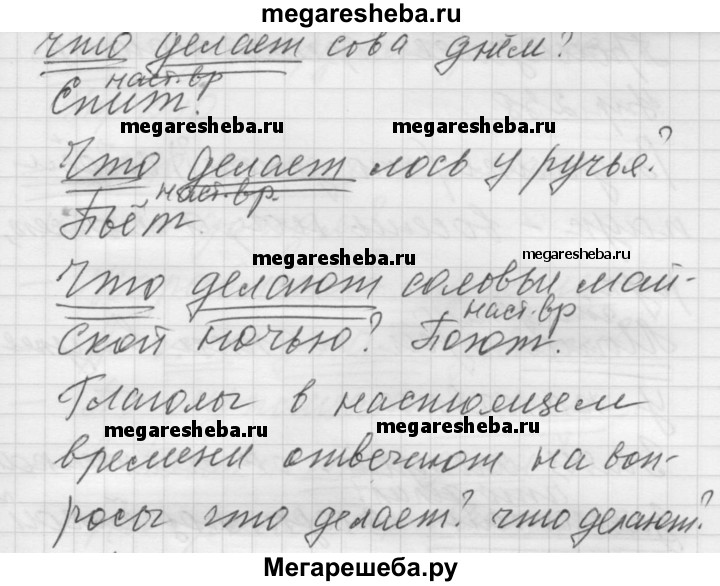 megaresheba.ru
что делает сова днём?
наст.вр
Спит!
megaresheba.ru megaresheba.ru
Что делает лось у ручья?
наст.вр.
Пьёт.
megaresheba.ru megaresheba.ru
Что делают соловьи май-
наст.вр
ской ночью? Поют.
Глаголы в настоящем
megaresheba.ru megaresheba.ru
времени отвечают на воп-
росы что делает? что делают?
Мегарешеба.ру